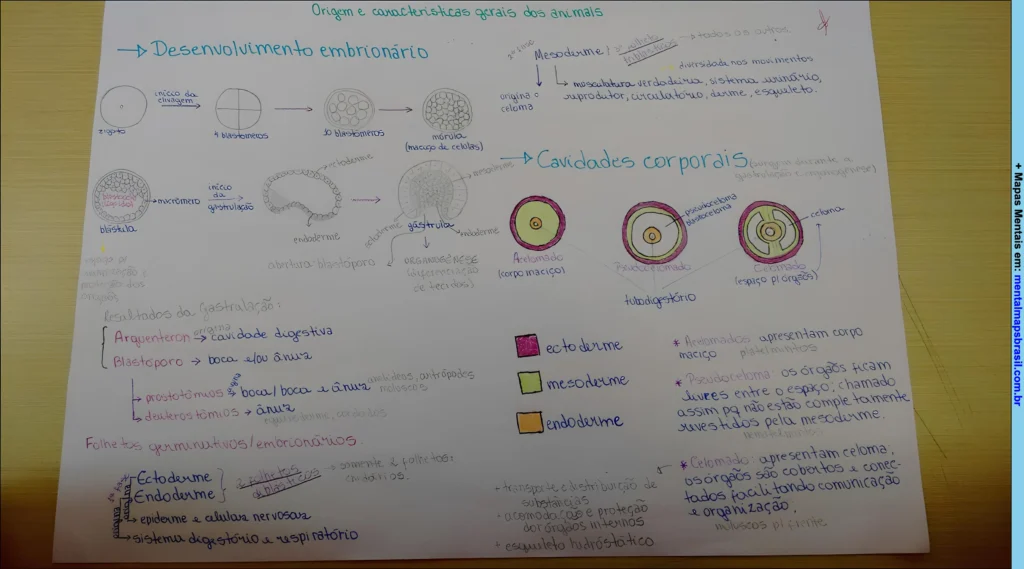 Origem e características gerais dos animais
→ Desenvolvimento embrionário
início da clivagem
zigoto
4 blastômeros
blastômeros
mórula
(maciço de células)
micrômero
blástula
início da gastrulação
ectoderme
endoderme
gástrula
mesoderme
endoderme
abertura blastóporo
ORGANOGÊNESE
de tecidos)
Resultados da Gastrulação:
Arquenteron origina → cavidade digestiva
Blastóporo → boca e/ou ânus
→ protostômios → boca/boca e ânus anelídeos, artrópodes
moluscos
→ deuterostômios → ânus
Folhetos germinativos/embrionários.
Ectoderme
Endoderme
2 folhetos
diblásticos
→ somente 2 folhetos:
cnidários.
→ epiderme e células nervosas
→ sistema digestório e respiratório
Mesoderme/ 3º folheto → todos os outros
triblásticos
diversidade nos movimentos
→ musculatura verdadeira, sistema urinário,
reprodutor, circulatório, derme, esqueleto.
origina o
celoma
→ Cavidades corporais (surgem durante a
gastrulação e organogênese)
pseudoceloma
blastoceloma
celoma
Acelomado
(corpo maciço)
Pseudocelomado
Celomado
(espaço p/ órgãos)
tubo digestório
ectoderme
mesoderme
endoderme
* Acelomados: apresentam corpo
maciço platelmintos
* Pseudoceloma: os órgãos ficam
livres entre o espaço; chamado
assim pq não estão completamente
revestidos pela mesoderme.
nematelmintos
* Celomado: apresentam celoma;
os órgãos são cobertos e conec-
tados facilitando comunicação
e organização.
moluscos p/ frente
+ transporte e distribuição de
substâncias
+ acomodação e proteção
dos órgãos internos
+ esqueleto hidróstático
+ Mapas Mentais em: mentalmapsbrasil.com.br